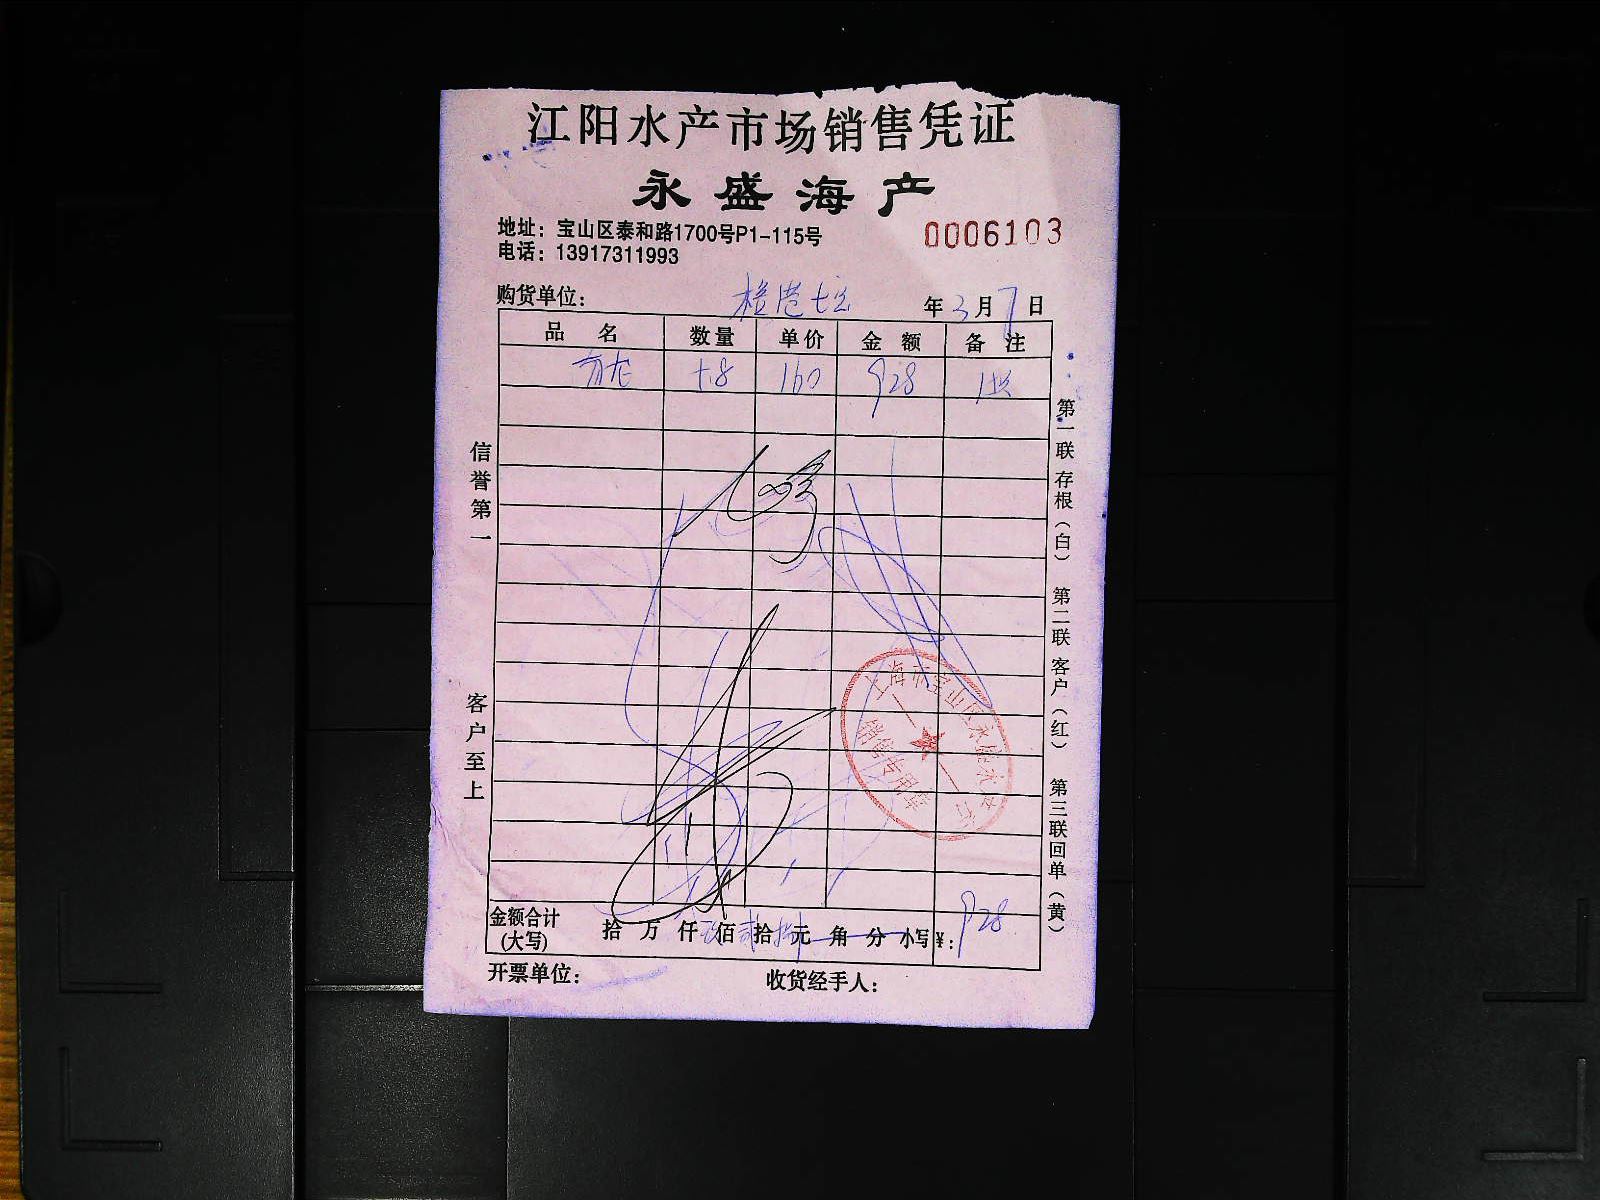 江阳水产市场销售凭证
永盛海产
地址：宝山区泰和路1700号P1-115号
0006103
电话：13917311993
购货单位： 年3月7日
品名 数量 单价 金额 备注
160 928
信誉第一
客户至上
第一联 存根（白） 第二联 客户（红） 第三联 回单（黄）
销售专用章
金额合计 拾 万 仟 佰 拾 元 角 分 小写¥：928
(大写)
开票单位： 收货经手人：